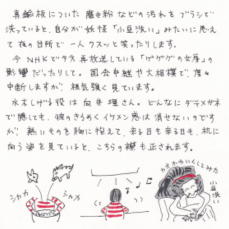 真鍮板についた磨き粉などの汚れをブラシで
洗っていると、自分が妖怪「小豆洗い」みたいに思え
て夜の台所で一人クスッと笑ったりします。
今NHKで夕方再放送している「ゲゲゲの女房」の
影響だったりして。国会中継や大相撲で、度々
中断しますが、根気強く見ています。
水木しげる役は向井理さん。どんなにダラメガネ
で隠しても、彼のきらめくイケメン感は消せないのです
が、熱いものを胸に抱えて、来る日も来る日も、机に
向う姿を見ていると、こちらの襟も正されます。
シャカ
シャカ
小豆洗い